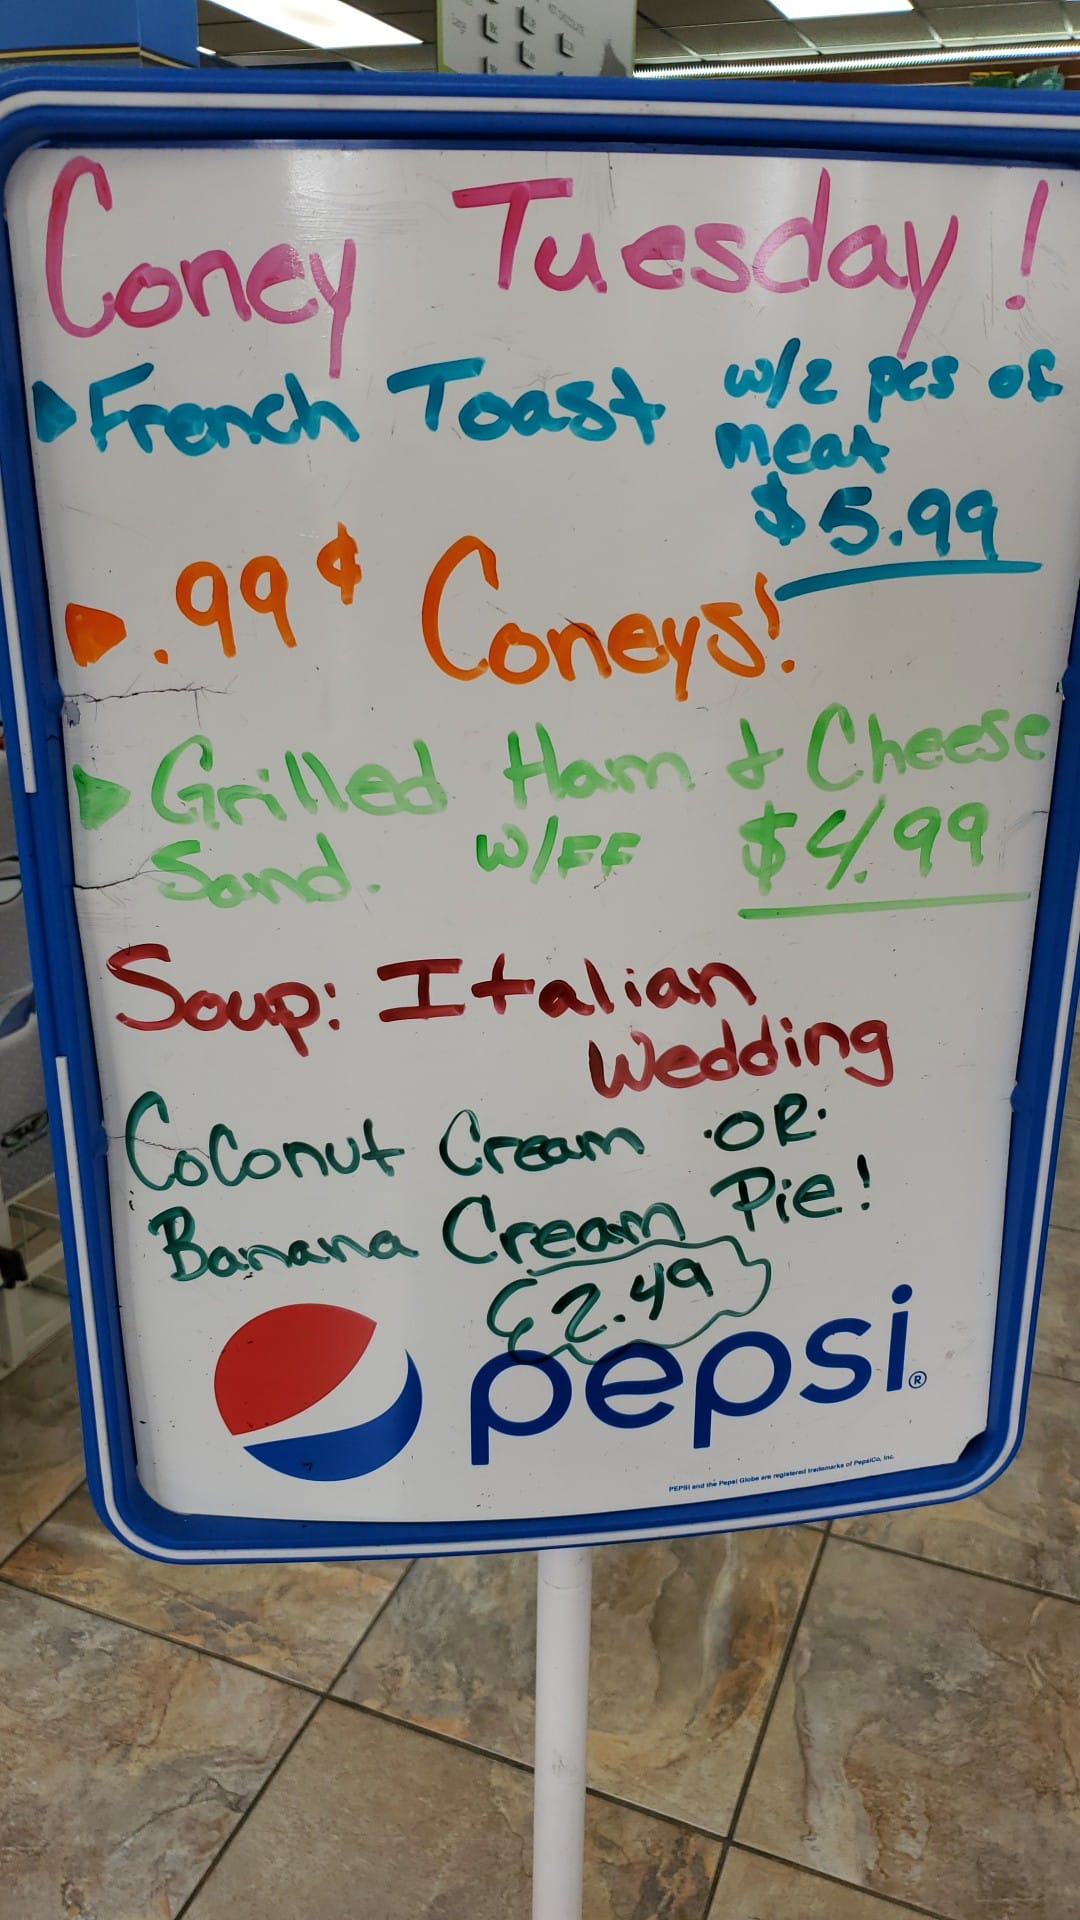 Coney Tuesday!
French Toast w/2 pcs of
meat
$5.99
.99¢ Coneys!
Grilled Ham & Cheese
Sand. w/FF $4.99
Soup: Italian
Wedding
Coconut Cream OR
Banana Cream Pie!
2.49
pepsi®
PEPSI and the Pepsi Globe are registered trademarks of PepsiCo, Inc.